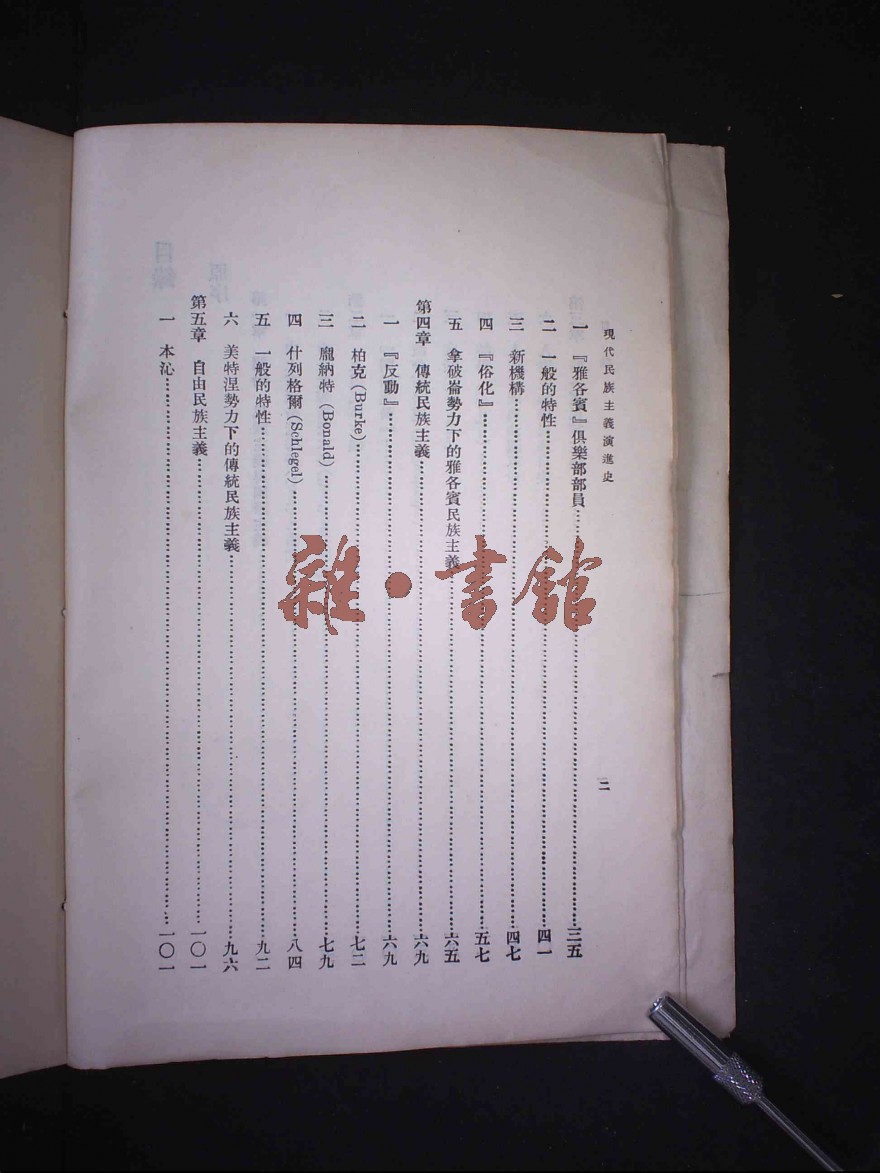 現代民族主義演進史
二
一 『雅各賓』俱樂部部員……三五
二 一般的特性……四一
三 新機構……四七
四 『俗化』……五七
五 拿破崙勢力下的雅各賓民族主義……六五
第四章 傳統民族主義……六九
一 『反動』……六九
二 柏克(Burke)……七二
三 龐納特(Bonald)……七九
四 什列格爾(Schlegel)……八四
五 一般的特性……九二
六 美特涅勢力下的傳統民族主義……九六
第五章 自由民族主義……一〇一
一 本沁……一〇一
目錄
原序
雜·書館